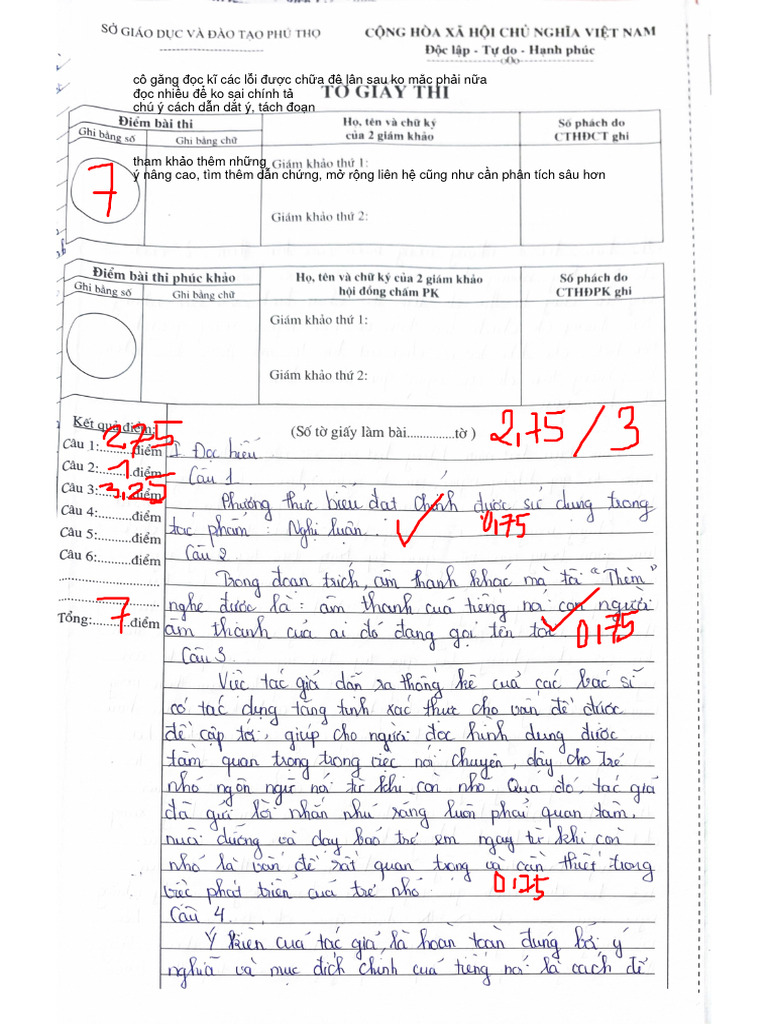 SỞ GIÁO DỤC VÀ ĐÀO TẠO PHÚ THỌ
CỘNG HÒA XÃ HỘI CHỦ NGHĨA VIỆT NAM
Độc lập - Tự do - Hạnh phúc
cô găng đọc kĩ các lỗi được chữa để lần sau ko măc phải nữa
đọc nhiều để ko sai chính tả
TỜ GIẤY THI
chú ý cách dẫn dắt ý, tách đoạn
Điểm bài thi
Ghi bằng số
Ghi bằng chữ
Họ, tên và chữ ký
của 2 giám khảo
Số phách do
CTHĐCT ghi
7
tham khảo thêm những
Giám khảo thứ 1:
ý nâng cao, tìm thêm dẫn chứng, mở rộng liên hệ cũng như cần phân tích sâu hơn
Giám khảo thứ 2:
Điểm bài thi phúc khảo
Ghi bằng số
Ghi bằng chữ
Họ, tên và chữ ký của 2 giám khảo
hội đồng chấm PK
Số phách do
CTHĐPK ghi
Giám khảo thứ 1:
Giám khảo thứ 2:
Kết quả điểm:
Câu 1:.........điểm 2,75
Câu 2:.........điểm 1
Câu 3:.........điểm 3,25
Câu 4:.........điểm
Câu 5:.........điểm
Câu 6:.........điểm
Tổng:..........điểm 7
(Số tờ giấy làm bài..............tờ )
2,75 / 3
I. Đọc hiểu
Câu 1.
Phương thức biểu đạt chính được sử dụng trong
tác phẩm : Nghị luận.
0,75
Câu 2
Trong đoạn trích, âm thanh khác mà tôi "Thèm"
nghe được là : âm thanh của tiếng nói con người
âm thanh của ai đó đang gọi tên tôi.
0,75
Câu 3.
Việc tác giả dẫn ra thống kê của các bác sĩ
có tác dụng tăng tính xác thực cho vấn đề được
đề cập tới, giúp cho người đọc hình dung được
tầm quan trọng trong việc nói chuyện, dạy cho trẻ
nhỏ ngôn ngữ nói từ khi còn nhỏ. Qua đó, tác giả
đã gửi lời nhắn nhủ rằng luôn phải quan tâm,
nuôi dưỡng và dạy bảo trẻ em ngay từ khi còn
nhỏ là vấn đề rất quan trọng và cần thiết trong
việc phát triển của trẻ nhỏ.
0,75
Câu 4.
Ý kiến của tác giả, là hoàn toàn đúng bởi ý
nghĩa và mục đích chính của tiếng nói là cách để